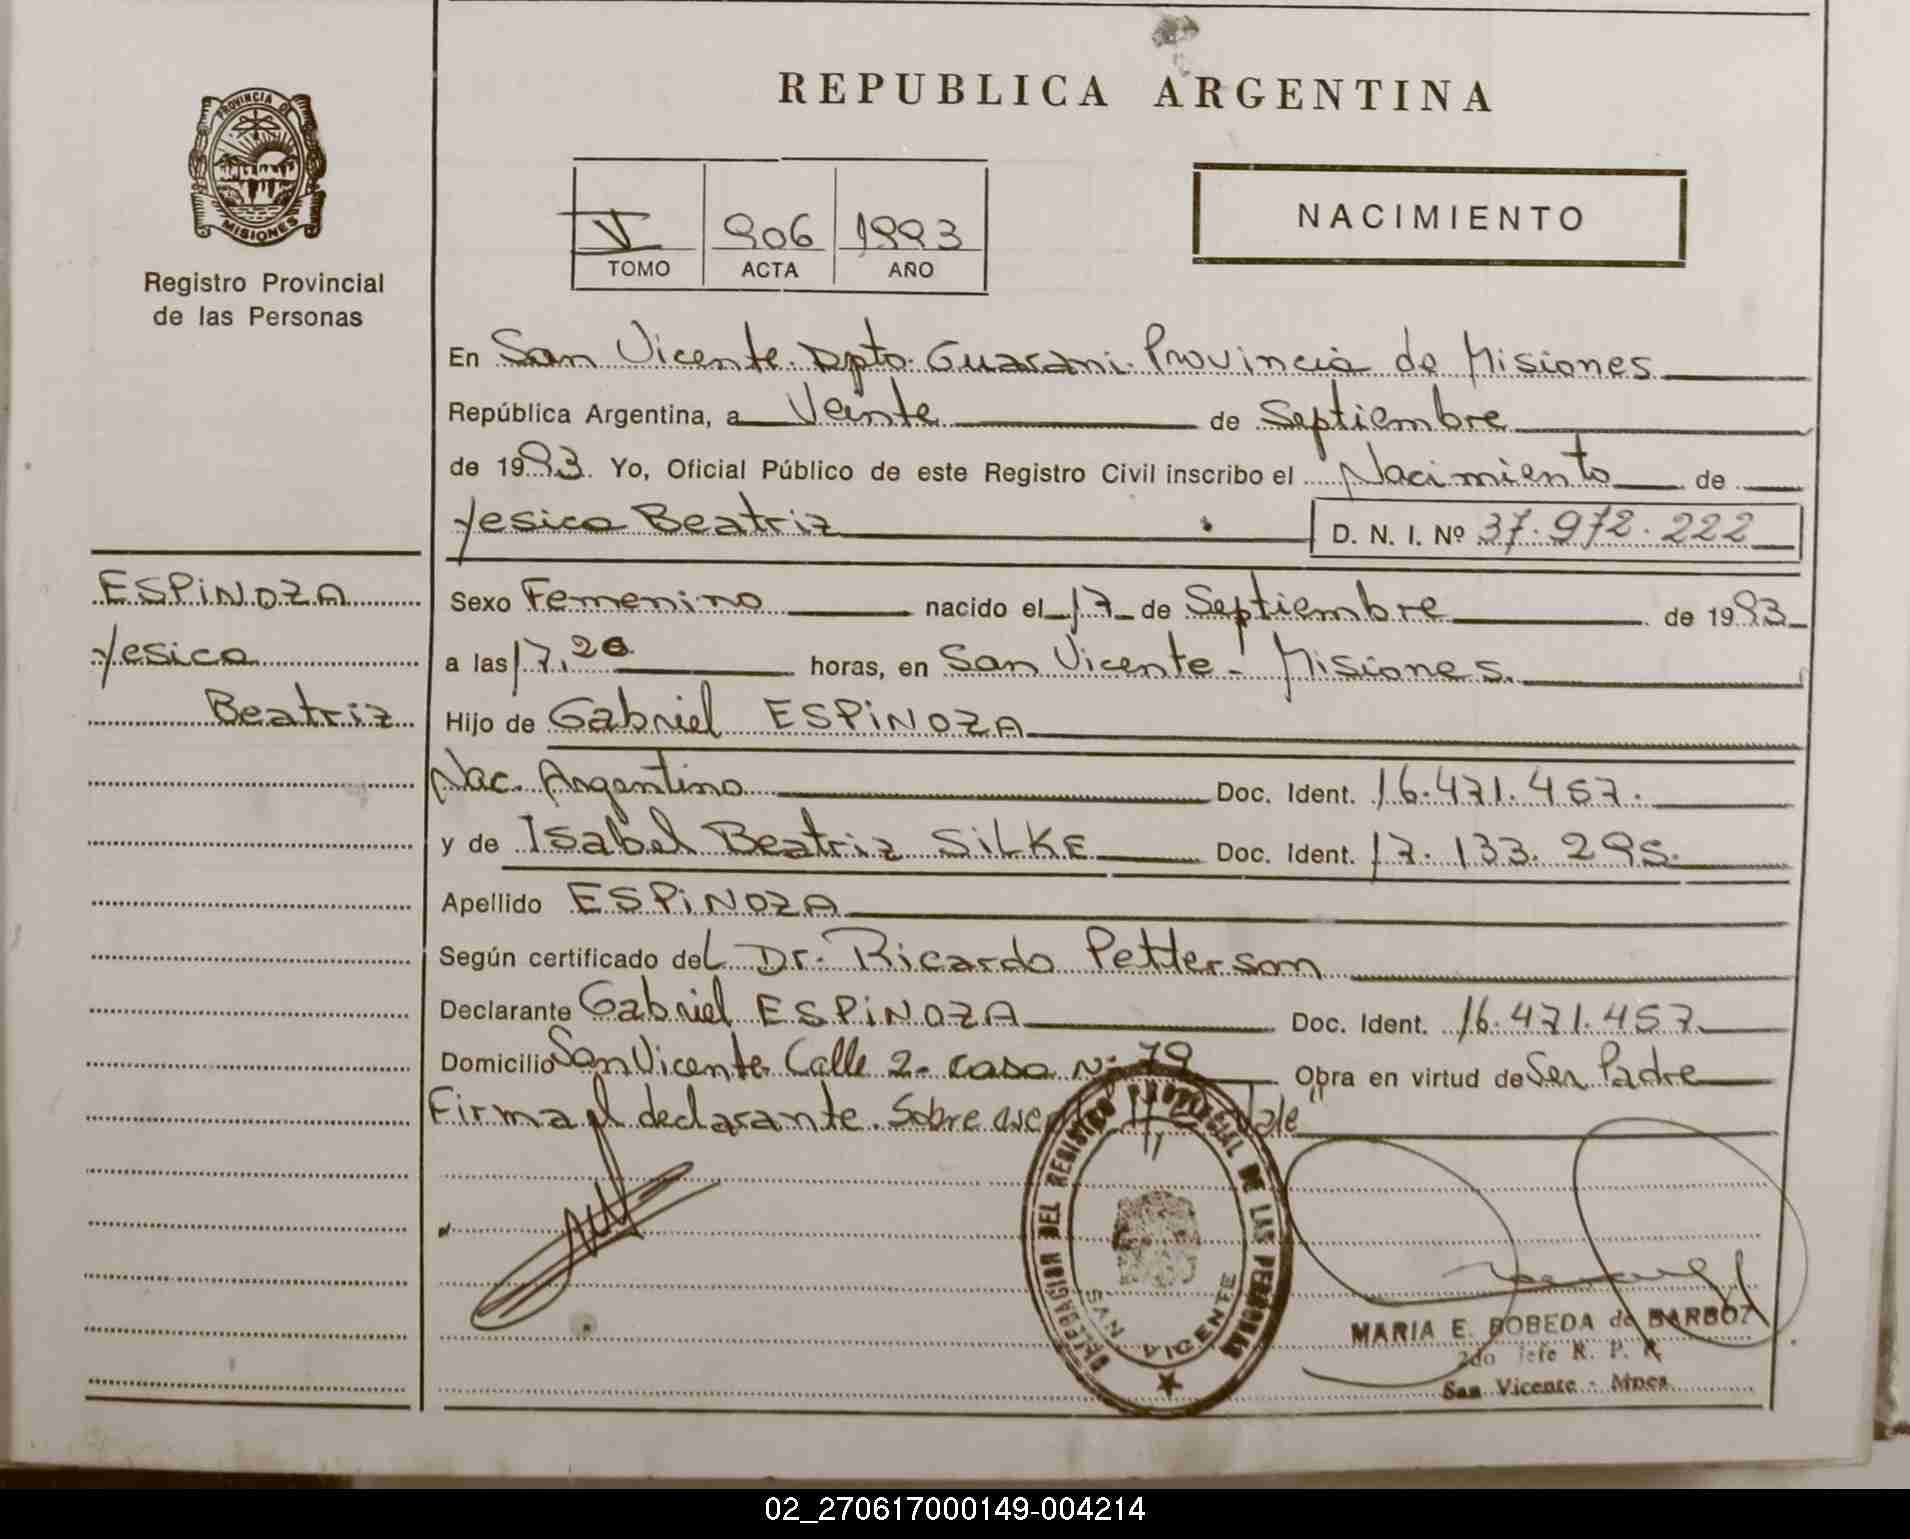 REPUBLICA ARGENTINA
PROVINCIA DE
MISIONES
Registro Provincial
de las Personas
V 906 1993
TOMO ACTA AÑO
NACIMIENTO
En San Vicente. Dpto. Guarani. Provincia de Misiones
República Argentina, a Veinte de Septiembre
de 1993. Yo, Oficial Público de este Registro Civil inscribo el Nacimiento de
Yesica Beatriz D. N. I. Nº 37.972.222
ESPiNOZA
Yesica
Beatriz
Sexo Femenino nacido el 17 de Septiembre de 1993
a las 17,20 horas, en San Vicente - Misiones.
Hijo de Gabriel ESPiNOZA
Nac. Argentino Doc. Ident. 16.471.457.
y de Isabel Beatriz SiLKE Doc. Ident. 17.133.295.
Apellido ESPiNOZA
Según certificado del Dr. Ricardo Petterson
Declarante Gabriel ESPiNOZA Doc. Ident. 16.471.457
Domicilio San Vicente Calle 2 - casa Nº 79 Obra en virtud de Ser Padre
Firma el declarante. Sobre Vale
DELEGACION DEL REGISTRO PROVINCIAL DE LAS PERSONAS
SAN VICENTE
MARIA E. BOBEDA de BARBOZ
2do Jefe R. P. P.
San Vicente - Mnes.
02_270617000149-004214